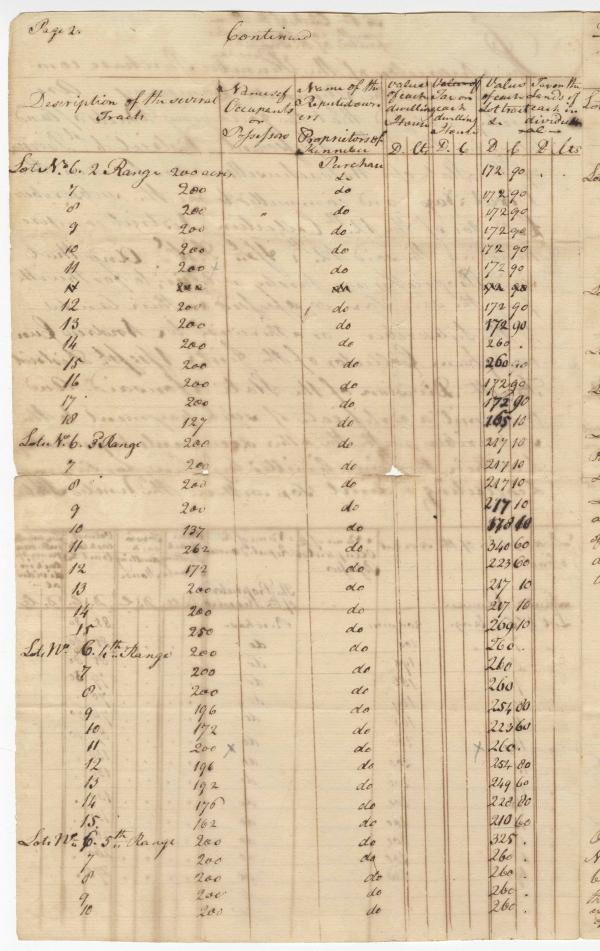 Page 2. Continued
Description of the several Tracts
Names of Occupants or Possessors
Name of the Reputed owners
Proprietors of Kennebec Purchase
Value of each dwelling House D. Cts
Tax on each dwelling House D. C
Value of each Lot tract &c D C
Tax on the Lands of each individual D Cts
Lots No. 6. 2 Range 200 acres do 172 90
7 200 do 172 90
8 200 " do 172 90
9 200 do 172 90
10 200 do 172 90
11 200 x do 172 90
11 200 do 172 90
12 200 do 172 90
13 200 do 172 90
14 200 do 260 .
15 200 do 260
16 200 do 172 90
17 200 do 172 90
18 127 do 165 10
Lots No. 6. 3 Range 200 do 217 10
7 200 do 217 10
8 200 do 217 10
9 200 do 217 10
10 137 do 178 10
11 262 do 340 60
12 172 do 223 60
13 200 do 217 10
14 200 do 217 10
15 250 do 269 10
Lots No. 6. 4th Range 200 do 260 .
7 200 do 260
8 200 do 260
9 196 do 254 80
10 172 do 223 60
11 200 x do x 260 .
12 196 do 254 80
13 192 do 249 60
14 176 do 228 80
15 162 do 210 60
Lots No. 6. 5th Range 200 do 325 .
7 200 do 260 .
8 200 do 260 .
9 200 do 260 .
10 200 do 260 .